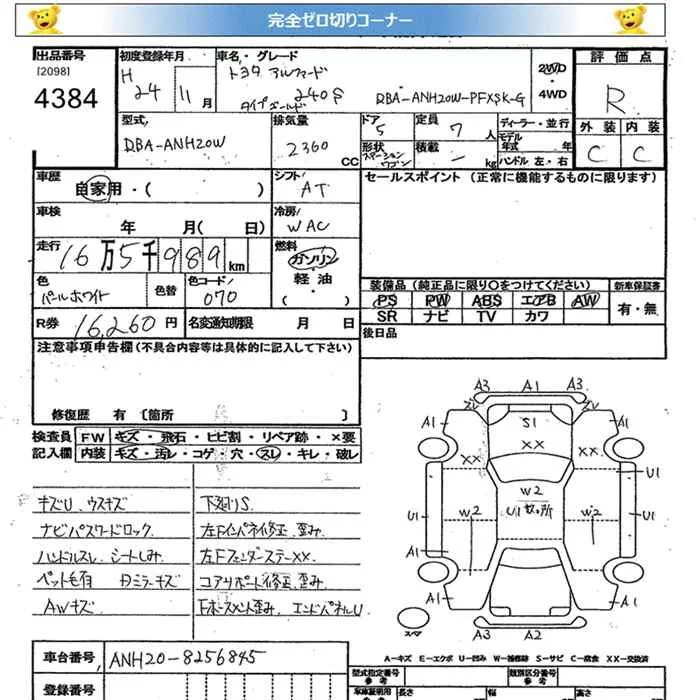 完全ゼロ切りコーナー
出品番号
[2098]
4384
初度登録年月
H 24 年 11 月
車名・グレード
トヨタ アルファード
タイプゴールド 240S
DBA-ANH20W-PFXSK-G
2WD
・
4WD
評価点
R
外装 内装
C C
型式
DBA-ANH20W
排気量
2360 CC
ドア
5
形状
ステーションワゴン
定員
7 人
積載
- kg
ディーラー・並行
モデル
年式 年
ハンドル 左・右
車歴
自家用・( )
シフト
AT
セールスポイント (正常に機能するものに限ります)
車検
年 月( 日)
冷房
WAC
走行
16万5千989km
燃料
ガソリン
・
軽油
色
パールホワイト
色替
色コード
070
装備品(純正品に限り○をつけてください)
PS PW ABS エアB AW
SR ナビ TV カワ
新車保証書
有・無
R券 16,260 円
名変通知期限 月 日
後日品
注意事項申告欄(不具合内容等は具体的に記入して下さい)
修復歴 有 [箇所 ]
検査員
記入欄
FW キズ・飛石・ヒビ割・リペア跡・×要
内装 キズ・汚レ・コゲ・穴・スレ・キレ・破レ
キズU ウスキズ
ナビパスワードロック
ハンドルスレ シートしみ
ペット毛有 Dミラーキズ
AWキズ
下廻りS
左Fインパネ修正 歪み
左Fフェンダーステー××
コアサポート修正 歪み
Fホースメント歪み エンドパネルU
A3 A1 A3
A1 A1
S1
XX XX XX
W2
U1 数ヶ所
U1 U1
U1
W2 W2
A1
A1 A1
スペア
A3 A2
A-キズ E-エクボ U-凹み W-補修跡 S-サビ C-腐食 XX-交換済
車台番号
ANH20-8256845
登録番号
型式指定番号
参考
類別区分番号
参考
車庫証明用
長さ
幅
高さ